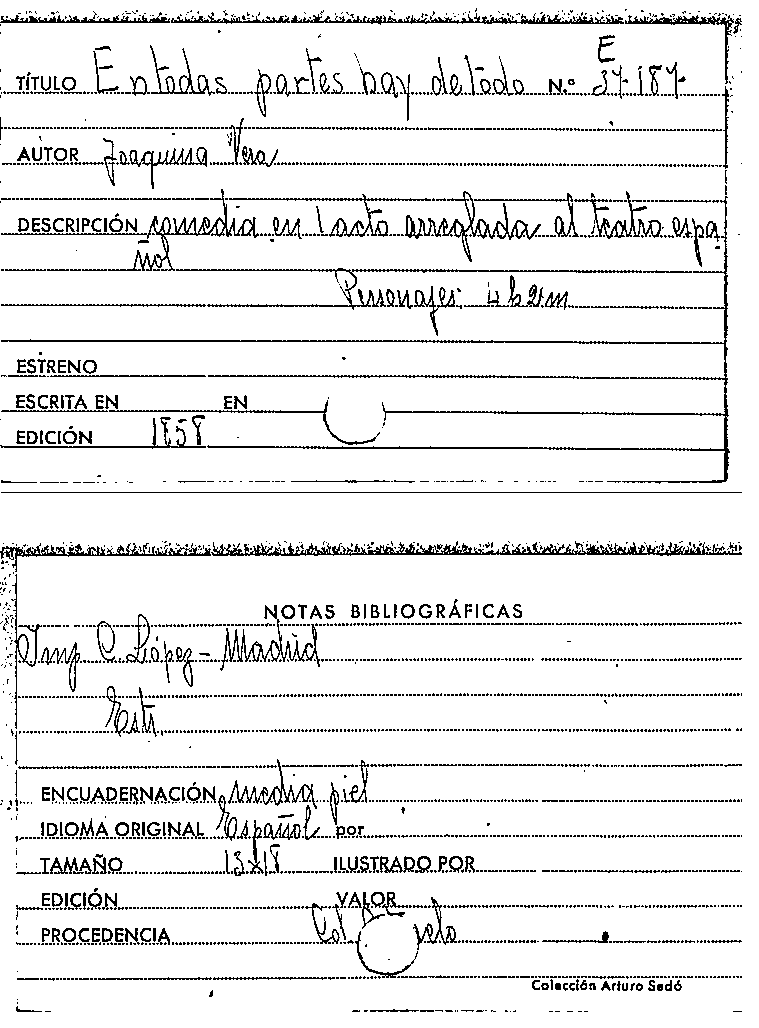 E
TÍTULO En todas partes hay de todo N.º 37-187-
AUTOR Joaquina Vera
DESCRIPCIÓN comedia en 1 acto arreglada al teatro espa-
ñol
Personajes: 4 h 2 m
ESTRENO
ESCRITA EN EN
EDICIÓN 1858
NOTAS BIBLIOGRÁFICAS
Imp C. López - Madrid
Estr.
ENCUADERNACIÓN media piel
IDIOMA ORIGINAL Español por
TAMAÑO 13x18 ILUSTRADO POR
EDICIÓN VALOR
PROCEDENCIA Col.
Colección Arturo Sedó